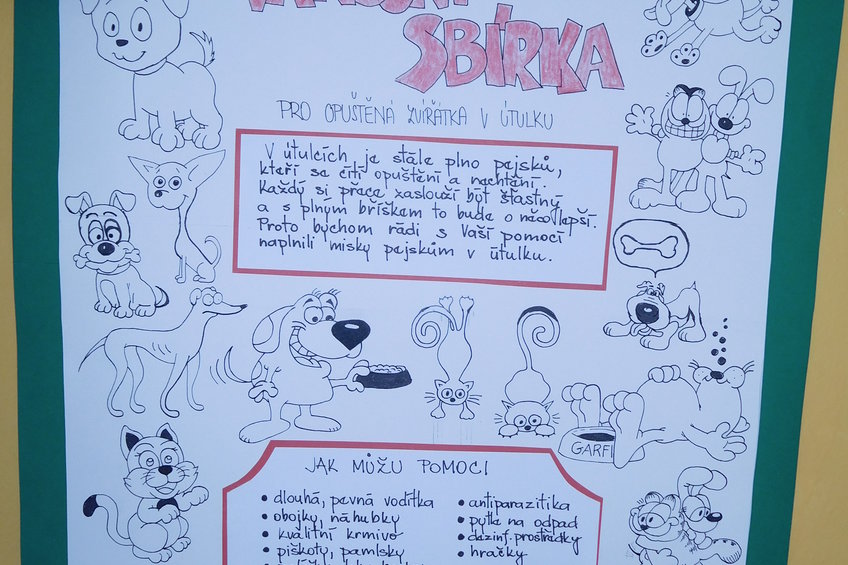 SBÍRKA
PRO OPUŠTĚNÁ ZVÍŘÁTKA V ÚTULKU
V útulcích je stále plno pejsků,
kteří se cítí opuštění a nechtění.
Každý si přece zaslouží být šťastný
a s plným bříškem to bude o něco lepší.
Proto bychom rádi s Vaší pomocí
naplnili misky pejskům v útulku.
GARFI
JAK MŮŽU POMOCI
• dlouhá, pevná vodítka
• obojky, náhubky
• kvalitní krmivo
• piškoty, pamlsky
• antiparazitika
• pytle na odpad
• dezinf. prostředky
• hračky